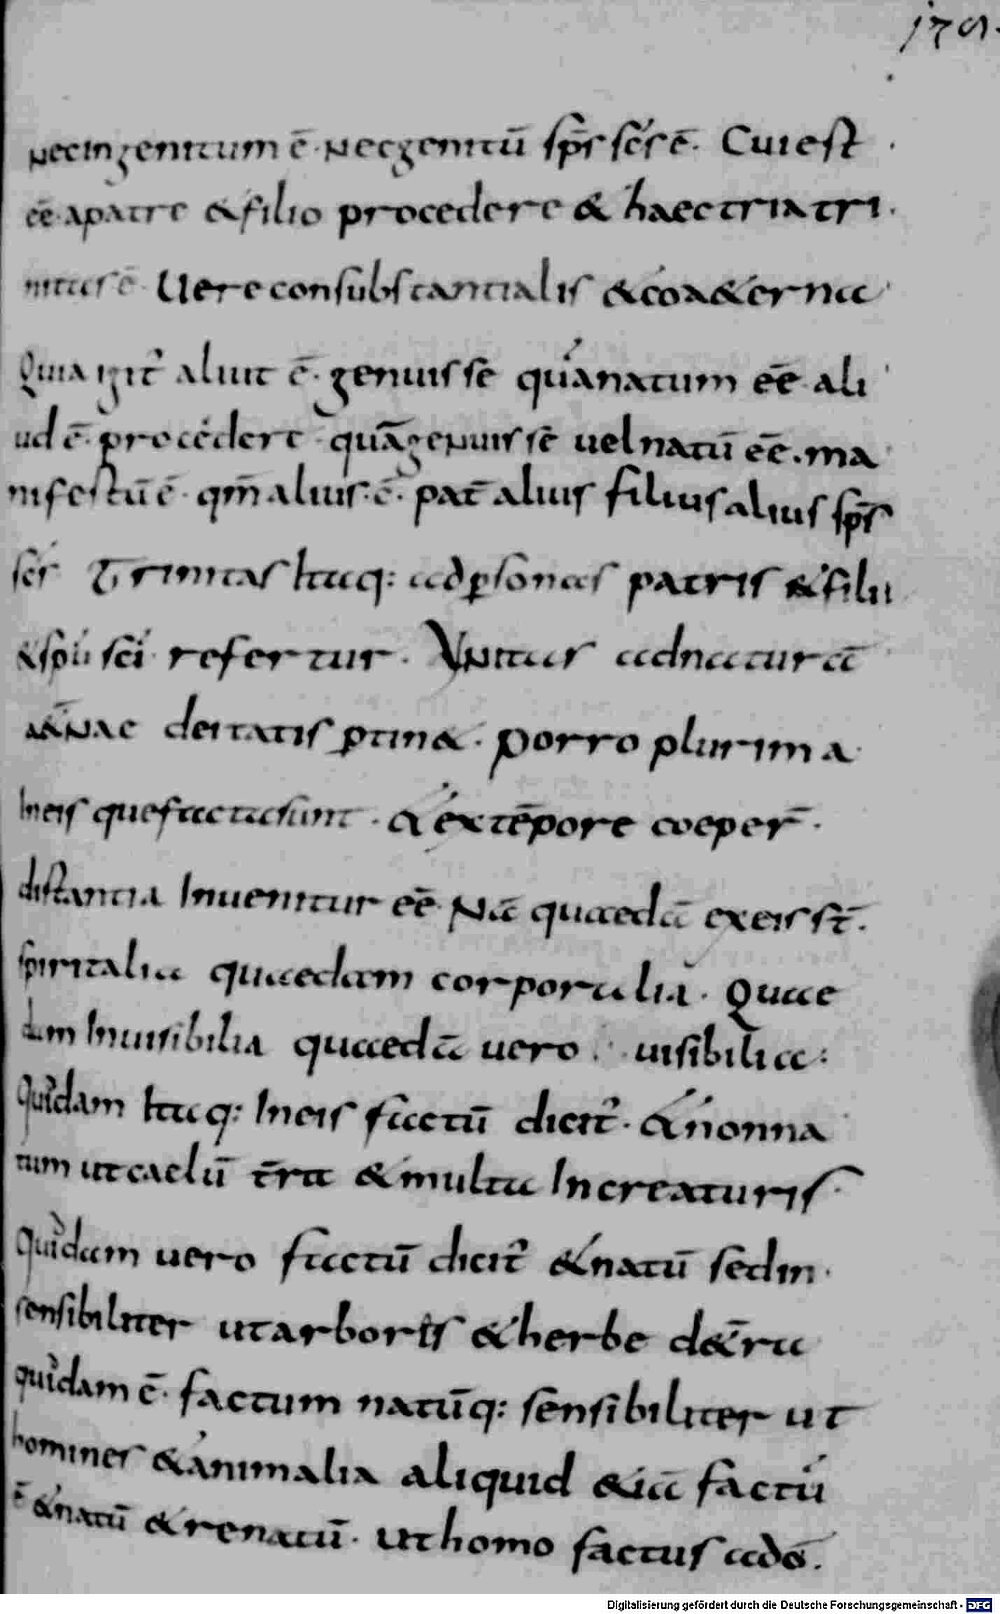 179.
nec ingenitum ē. nec genitū sp̄s sc̄s ē. Cui est
eē. a patre & filio procedere & haec tria tri
nitas ē. Uere consubstantialis & coa&erna
Quia igit̄ aliut ē. genuisse quā natum eē. ali
ud ē. procedere. quā genuisse uel natū eē. ma
nifestū ē. qm̄ alius. ē. pat̄ alius filius alius sp̄s
sc̄s Trinitas itaq: ad p̱sonas patris & filii
& sp̄ū sc̄ī refertur. Unitas ad naturā
deitatis p̱tin&. Porro plurima
In eis que facta sunt. & ex tēpore coeper̄.
distantia Inuenitur eē Nā quaedā ex eis st̄.
spiritalia quaedam corporalia. Quae
dam Inuisibilia quaedā uero uisibilia:
Quidam itaq: In eis factū dicit̄. & non na
tum ut caelū t̄ra & multa In creaturis.
Quidam uero factū dicit̄ & natū sed in
sensibiliter ut arboris & herbe d& c̄ra
quidam ē. factum natūq: sensibiliter ut
homines & animalia aliquid & iā factū
ē & natū & renatū. ut homo factus ad o.
Digitalisierung gefördert durch die Deutsche Forschungsgemeinschaft - DFG